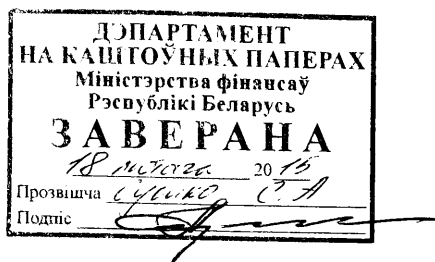 ДЭПАРТАМЕНТ
НА КАШТОЎНЫХ ПАПЕРАХ
Міністэрства фінансаў
Рэспублікі Беларусь
ЗАВЕРАНА
18 лютага 2015
Прозвішча С.А
Подпіс